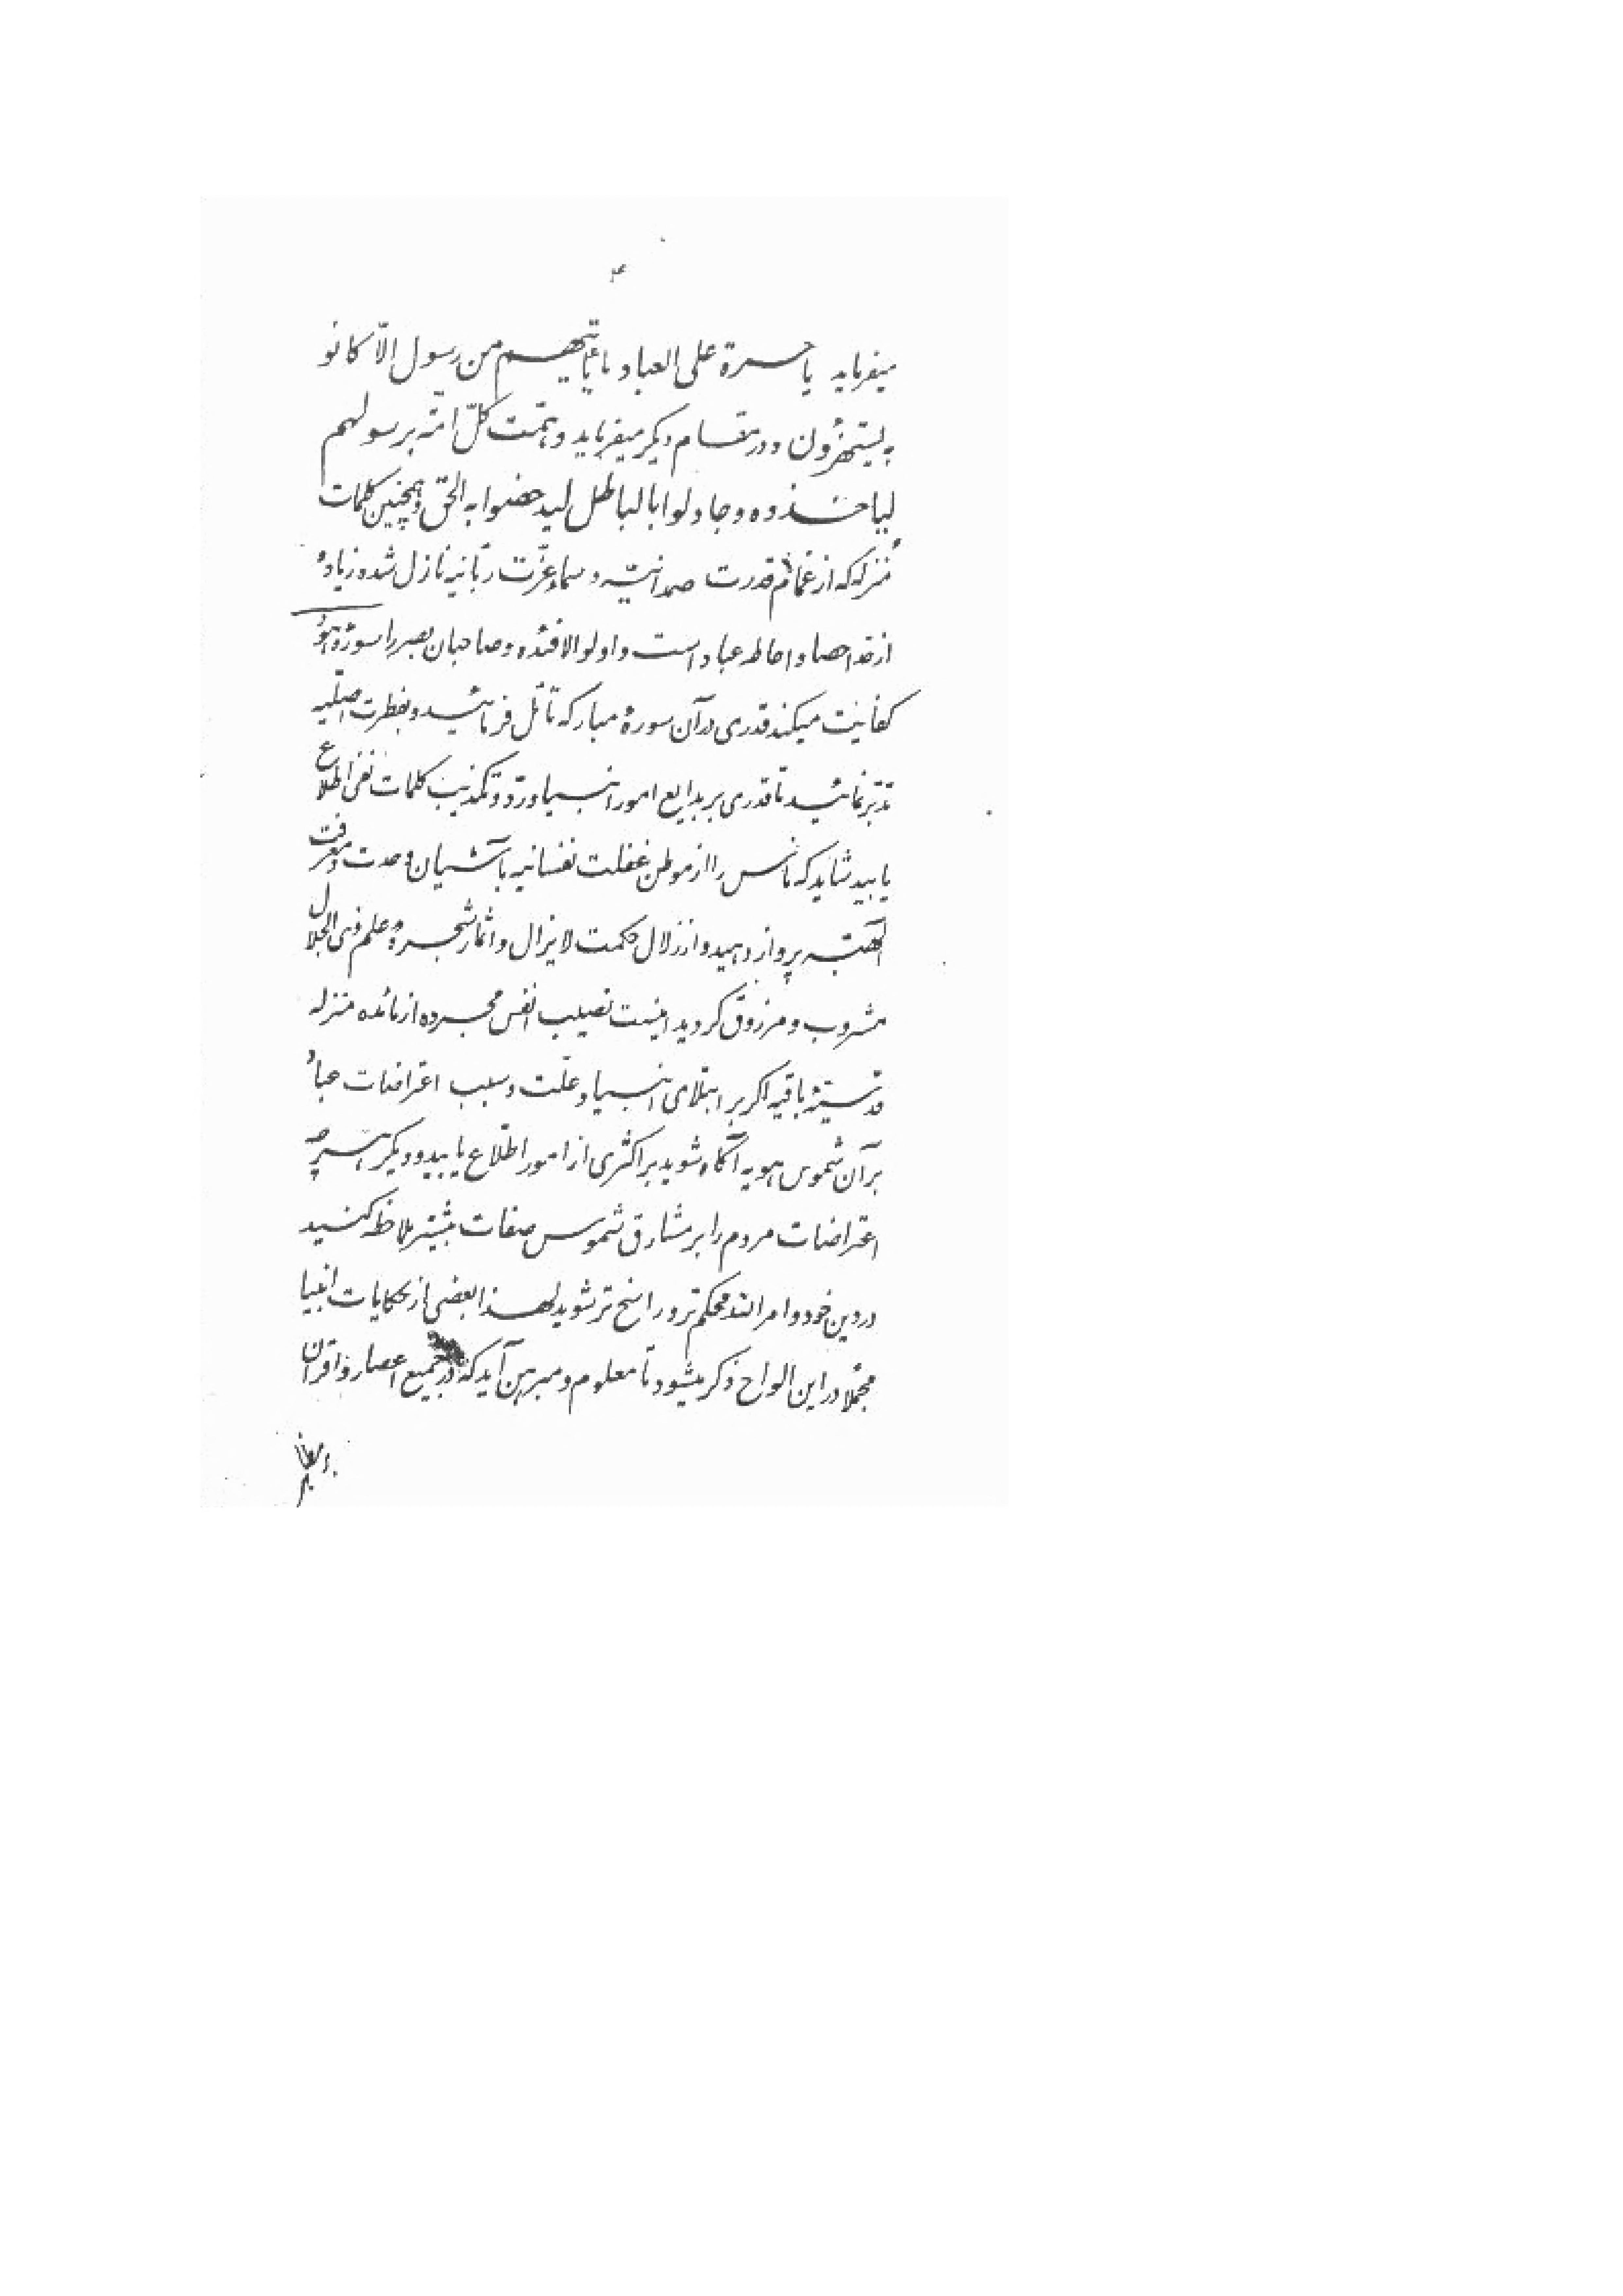 ۴
میفرماید یا حسرة علی العباد ما یأتیهم من رسول الّا کانو
به یستهزؤن و در مقام دیگر میفرماید و همّت کلّ امّة برسولهم
لیاخذوه و جادلوا بالباطل لیدحضوا به الحقّ و همچنین کلمات
منزله که از غمام قدرت صمدانیّه و سماء عزّت ربّانیّه نازل شده زیاده
از حدّ احصا و احاطه عباد است و اولو الافئده و صاحبان بصر را سورهٔ هود
کفایت میکند قدری در آن سورهٔ مبارکه تأمّل فرمائید و بفطرت اصلیّه
تدبّر نمائید تا قدری بر بدایع امور انبیا و ردّ و تکذیب کلمات نفی اطّلاع
یابید شاید که ناس را از موطن غفلت نفسانیه بآشیان وحدت و معرفت
الهیّه پرواز دهید و از زلال حکمت لایزال و اثمار شجرهٔ علم ذی الجلال
مشروب و مرزوق گردید اینست نصیب انفس مجرده از مائده منزله
قدسیّهٔ باقیه اگر بر ابتلای انبیا و علّت و سبب اعتراضات عباد
بر آن شموس هویه آگاه شوید بر اکثری از امور اطّلاع یابید و دیگر هر چه
اعتراضات مردم را بر مشارق شموس صفات بیشتر ملاحظه کنید
در دین خود و امر الله محکم‌تر و راسخ‌تر شوید لهذا بعضی از حکایات انبیا
مجملًا در این الواح ذکر میشود تا معلوم و مبرهن آید که در جمیع اعصار و اقران
بر مظاهر